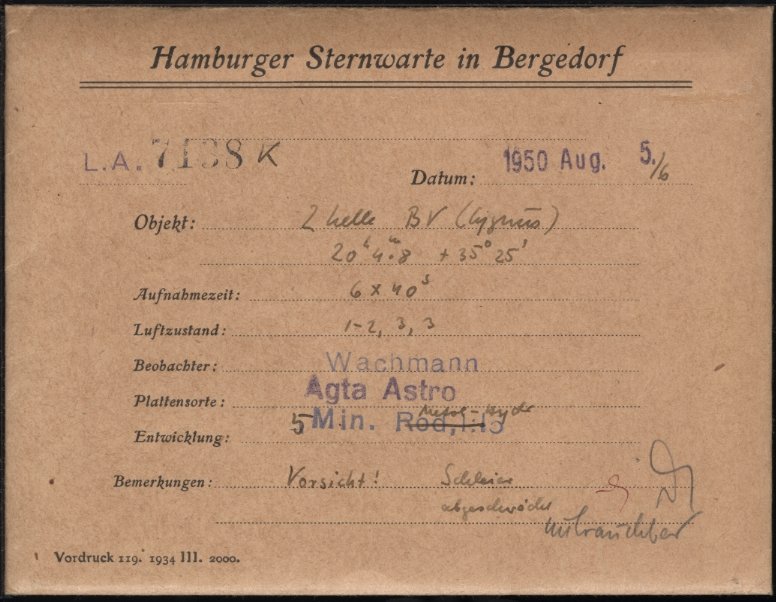 Hamburger Sternwarte in Bergedorf
L.A. 7138 K
Datum: 1950 Aug. 5./6
Objekt: 2 helle BV (Cygnus)
20ʰ 4ᵐ.8 + 35° 25'
Aufnahmezeit: 6 x 40ˢ
Luftzustand: 1-2, 3, 3
Beobachter: Wachmann
Plattensorte: Agfa Astro
Metol-Hydr
Entwicklung: 5 Min. Rod, 1:
Bemerkungen: Vorsicht! Schleier
abgeschwächt
unbrauchbar
Vordruck 119. 1934 III. 2000.